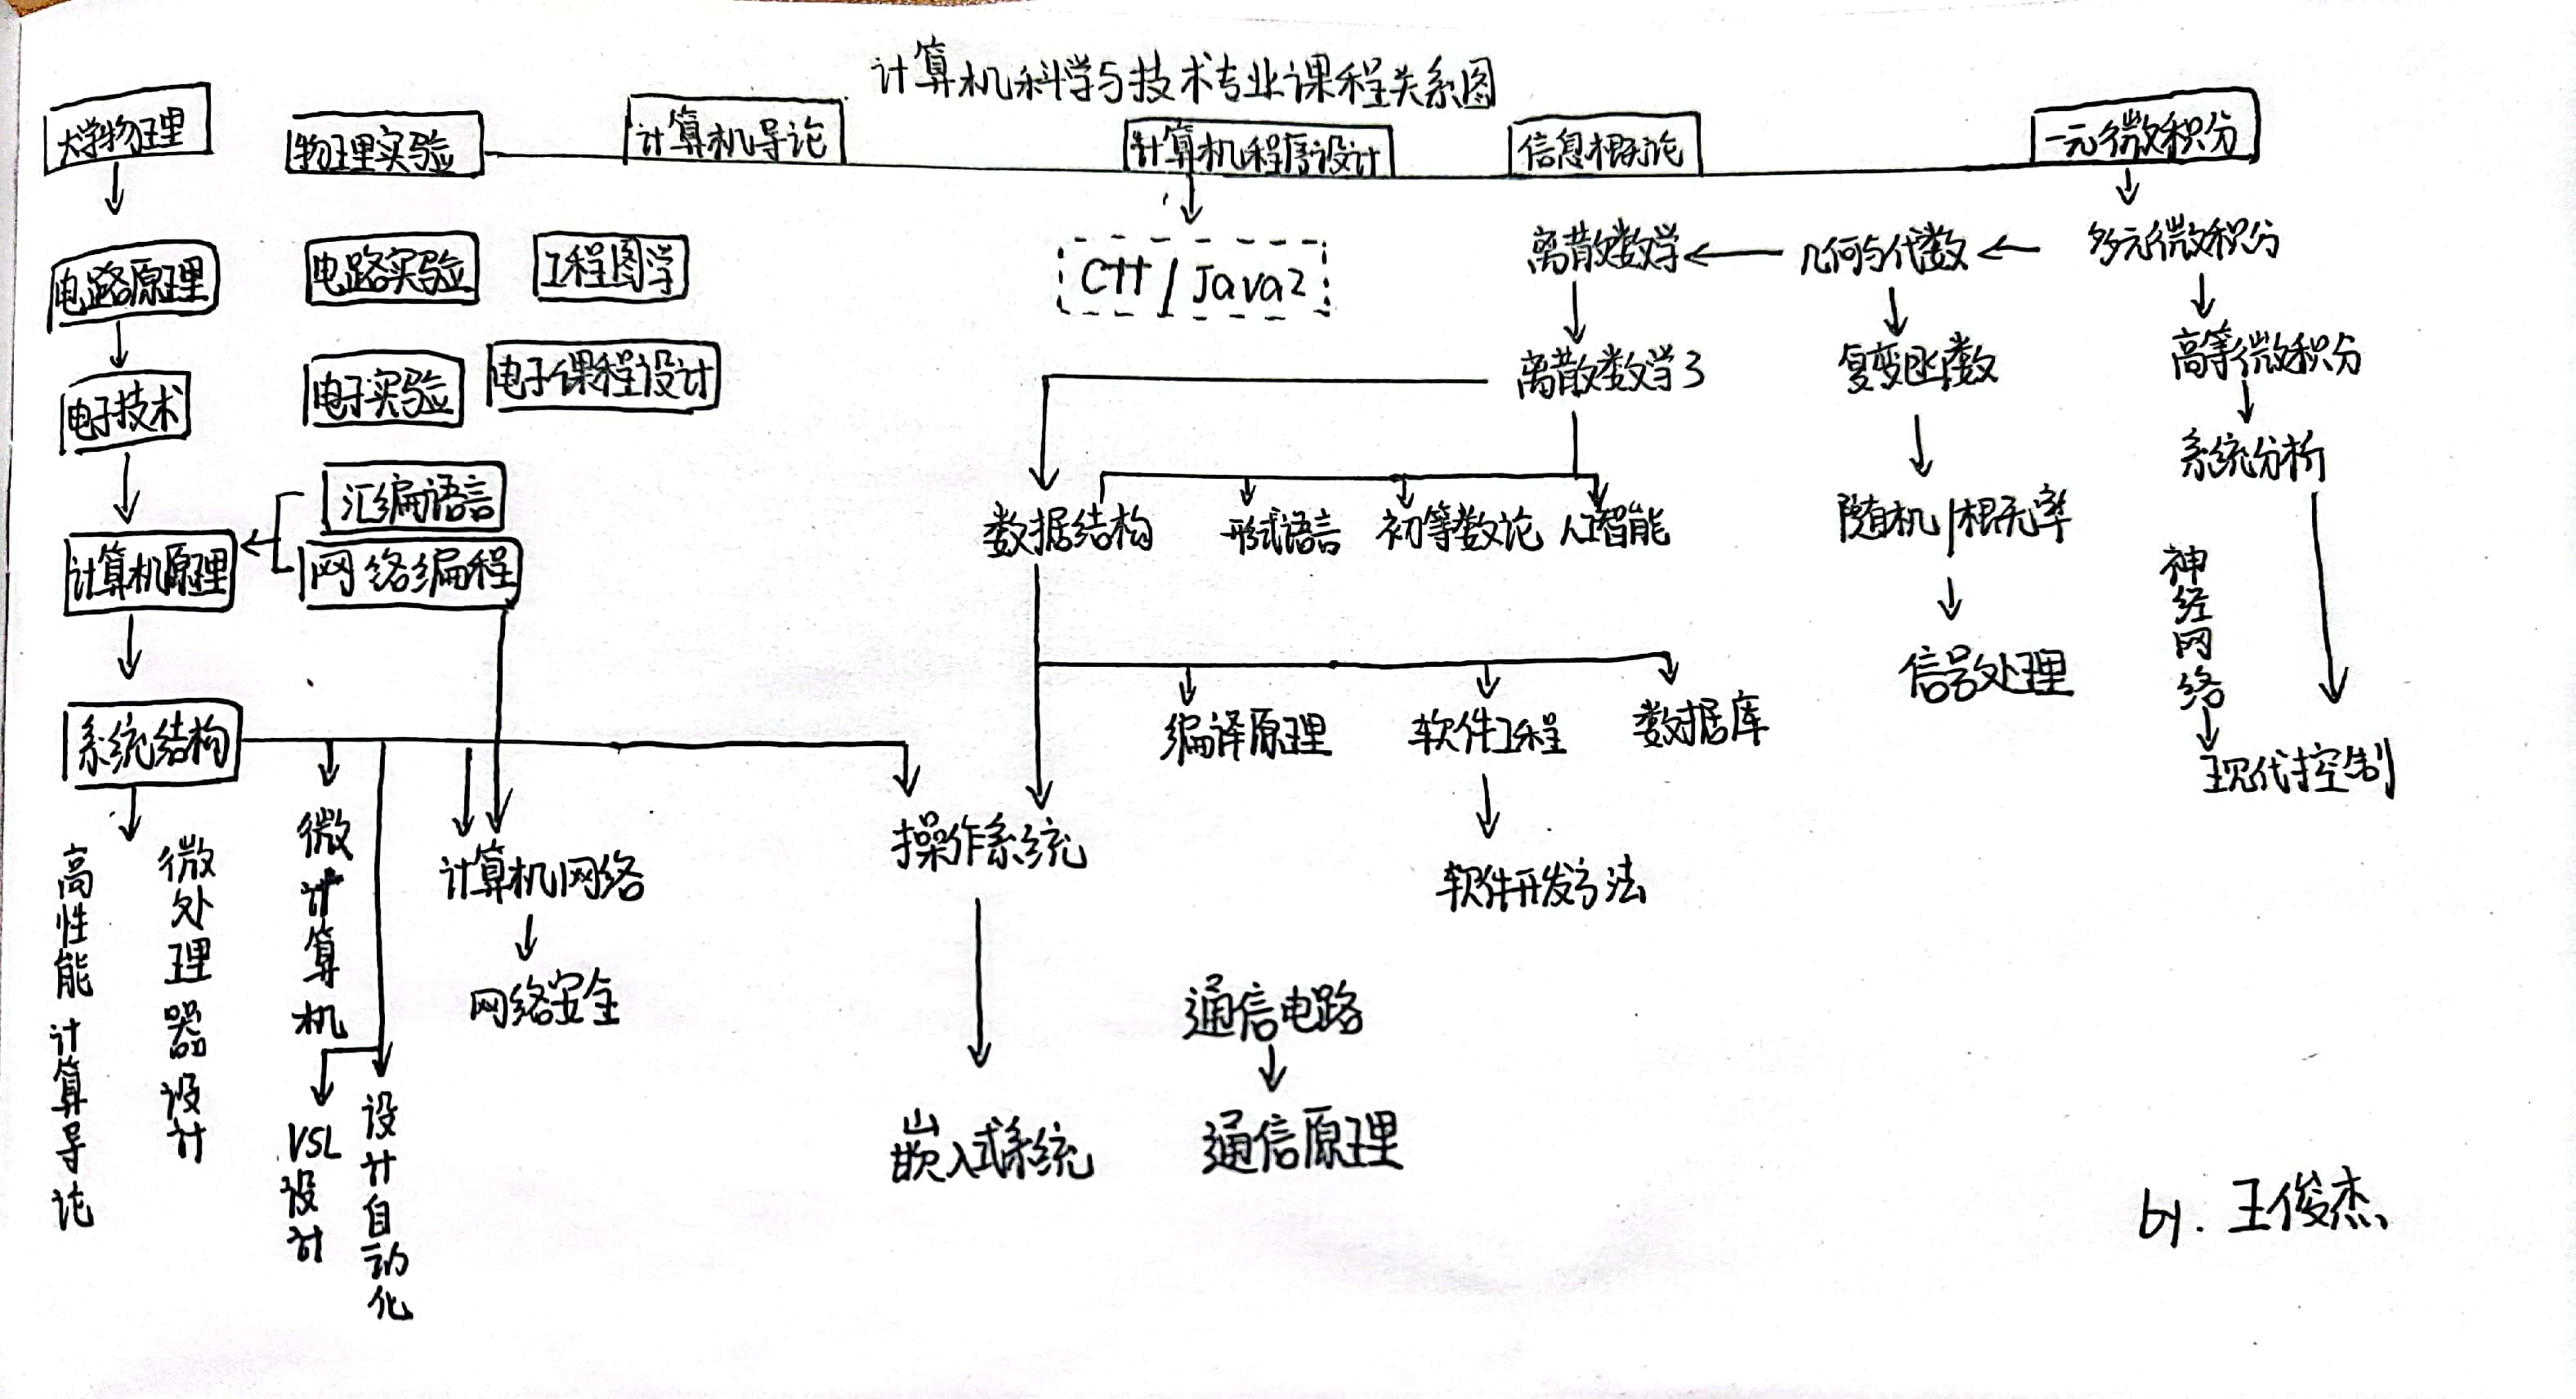 计算机科学与技术专业课程关系图
大学物理
物理实验
计算机导论
计算机程序设计
信息概论
一元微积分
电路原理
电路实验
工程图学
C++/Java2
离散数学
几何与代数
多元微积分
电子技术
电子实验
电子课程设计
离散数学3
复变函数
高等微积分
系统分析
汇编语言
计算机原理
网络编程
数据结构
形式语言
初等数论
人工智能
随机/概率
神经网络
系统结构
编译原理
软件工程
数据库
信号处理
现代控制
高性能计算导论
微处理器设计
微计算机
计算机网络
操作系统
软件开发方法
网络安全
通信电路
VSL设计
设计自动化
嵌入式系统
通信原理
by. 王俊杰